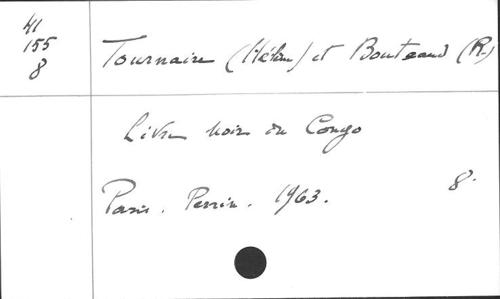 41
155
8
Tournaire (Hélène) et Bouteaud (R.)
Livre noir du Congo
Paris. Perrin. 1963. 8°